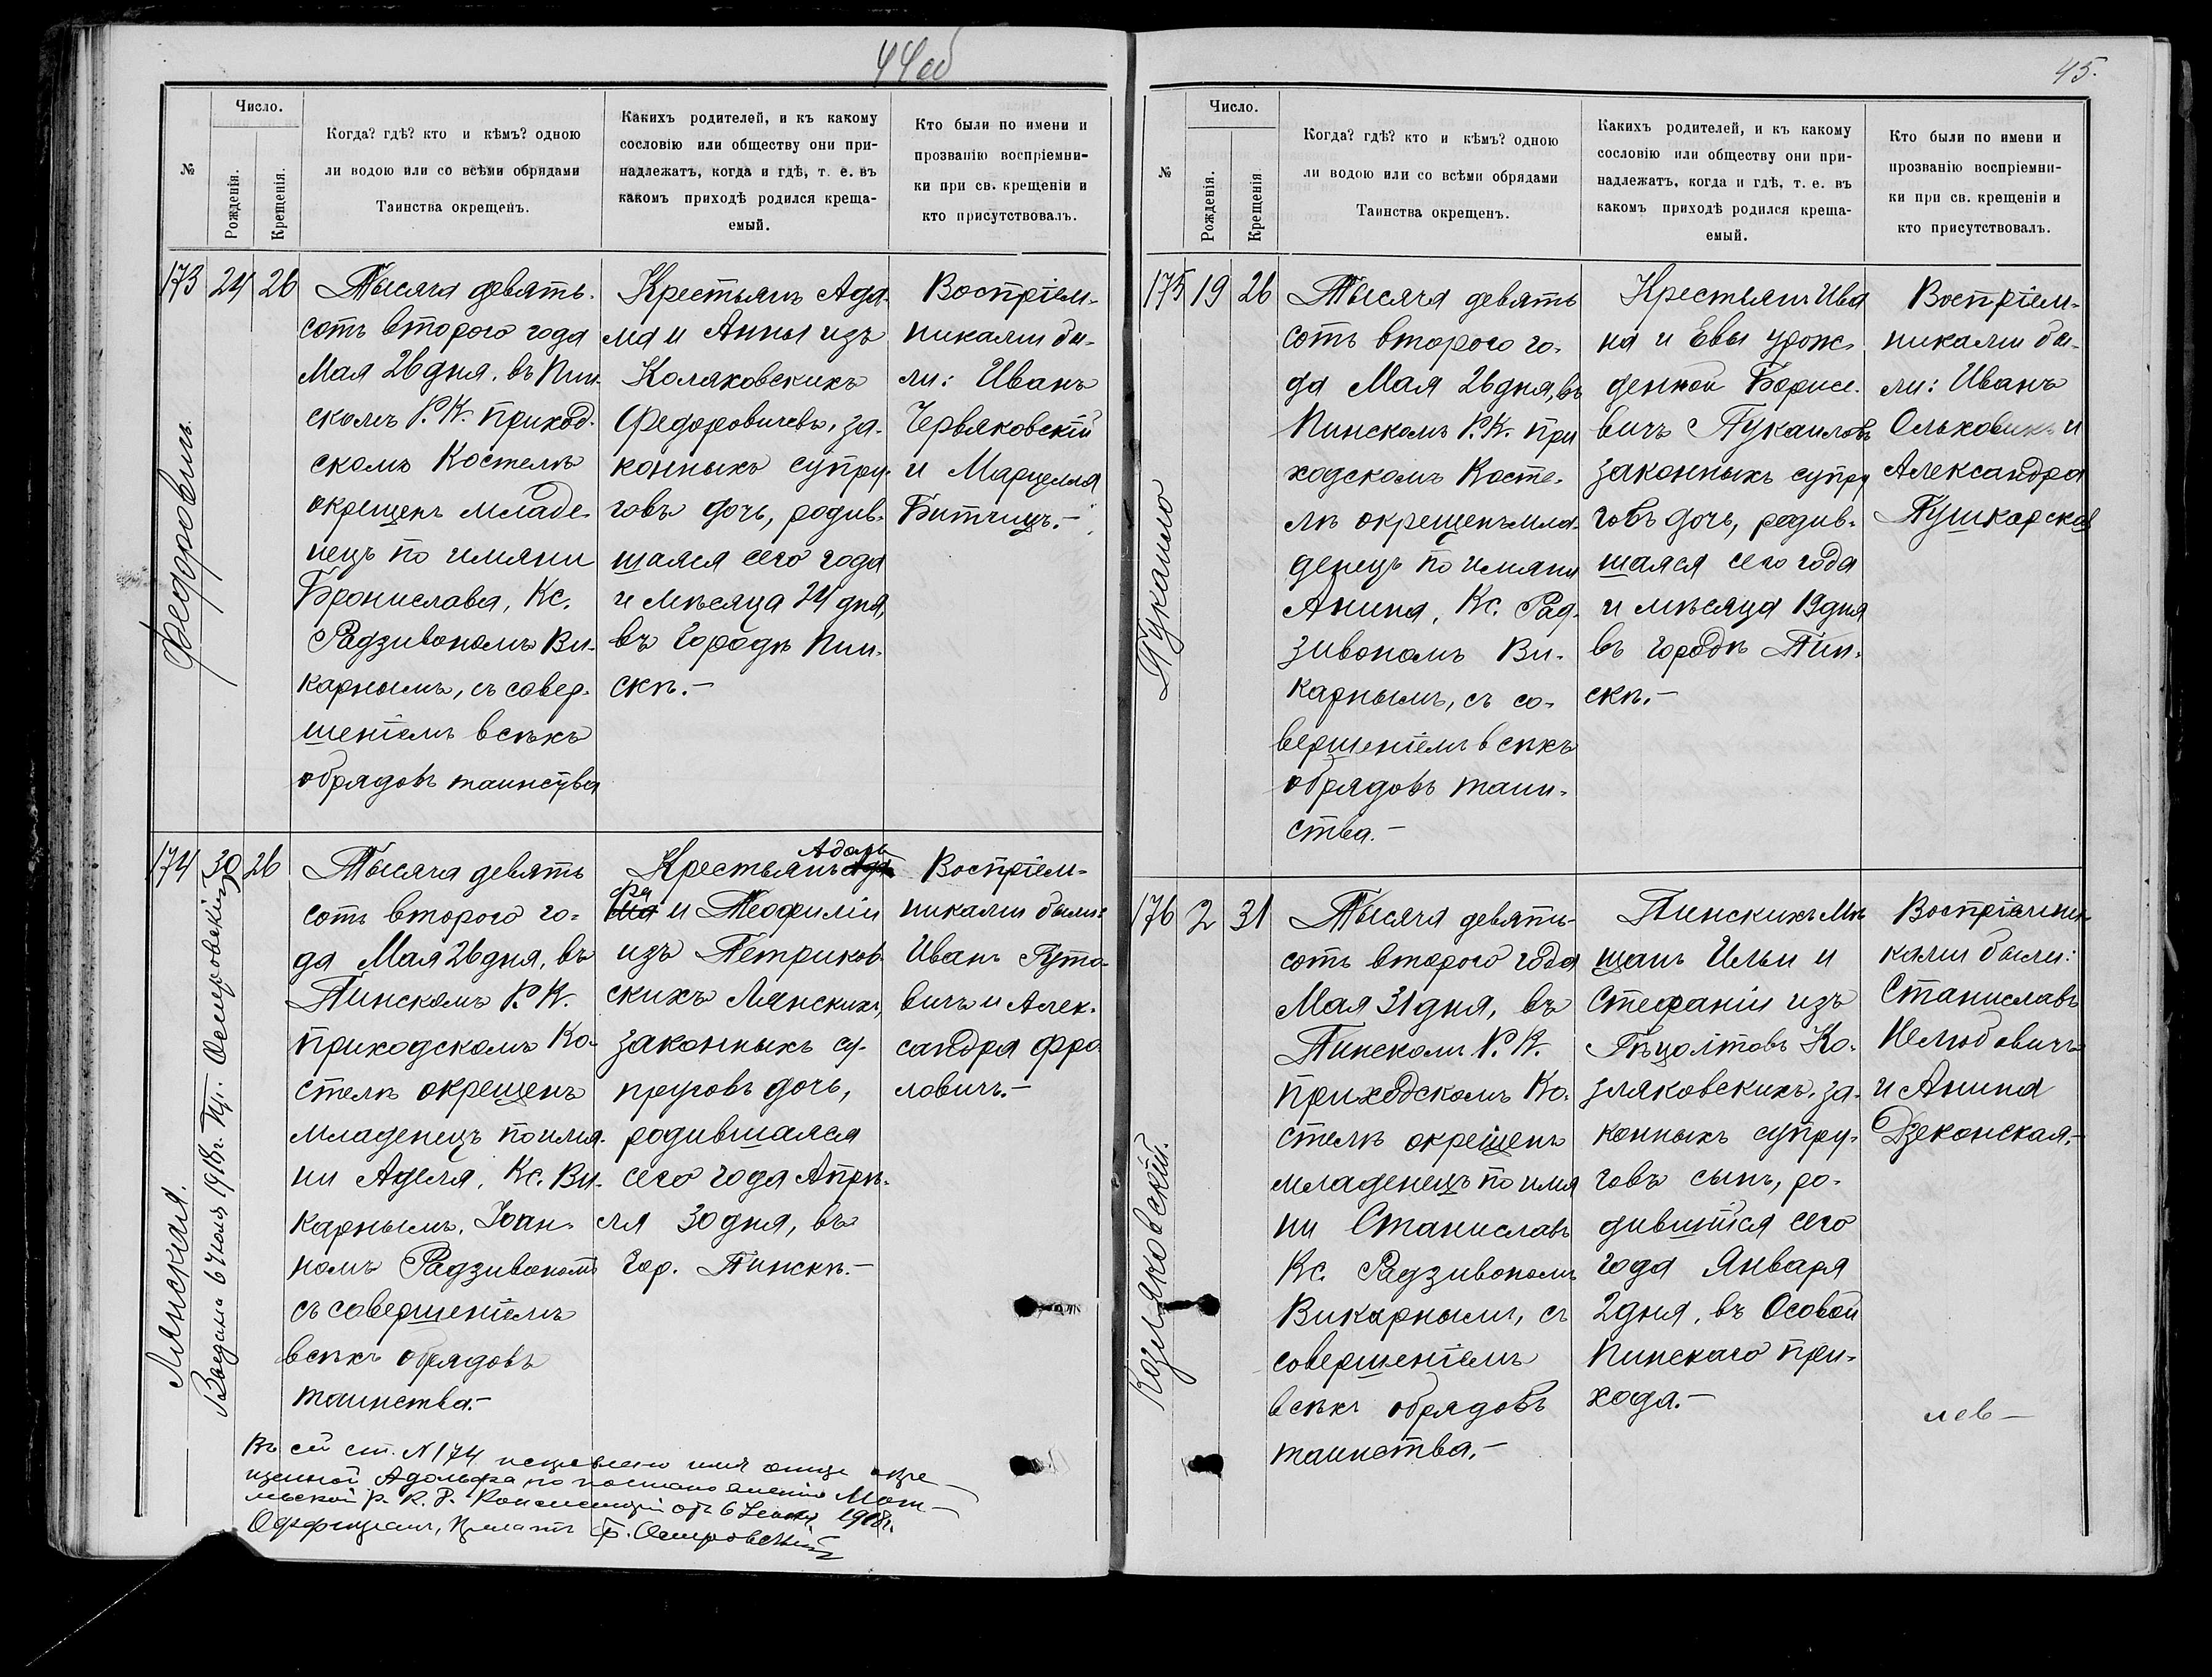 44об
№
Число.
Рожденія.
Крещенія.
Когда? гдѣ? кто и кѣмъ? одною
ли водою или со всѣми обрядами
Таинства окрещенъ.
Какихъ родителей, и къ какому
сословію или обществу они при-
надлежатъ, когда и гдѣ, т. е. въ
какомъ приходѣ родился креща-
емый.
Кто были по имени и
прозванію воспріемни-
ки при св. крещеніи и
кто присутствовалъ.
Федоровичъ.
173 24 26
Тысяча девять-
сотъ второго года
Мая 26 дня, въ Пин-
скомъ Р. К. приход-
скомъ Костелѣ
окрещенъ младе-
нецъ по имяни
Бронислава, Кс.
Радзивономъ Ви-
карнымъ, съ совер-
шеніемъ всѣхъ
обрядовъ таинства
Крестьянъ Ада-
ма и Анны изъ
Коляковскихъ
Федоровичевъ, за-
конныхъ супру-
говъ дочь, родив-
шаяся сего года
и мѣсяца 24 дня,
въ городѣ Пин-
скѣ.-
Воспріем-
никами бы-
ли: Иванъ
Червяковскій
и Марцелла
Битчицъ.-
Лянская.
Выдана 6 Іюля 1918 г. Пр. Осмоловскій
174 30 26
Тысяча девять
сотъ второго го-
да Мая 26 дня, въ
Пинскомъ Р. К.
приходскомъ Ко-
стелѣ окрещенъ
младенецъ по имя-
ни Аделя, Кс. Ви-
карнымъ, Іоан-
номъ Радзивономъ
съ совершеніемъ
всѣхъ обрядовъ
таинства.-
Адоль
Крестьянъ
фа и Теофиліи
изъ Петриков-
скихъ Лянскихъ,
законныхъ су-
пруговъ дочь,
родившаяся
сего года Апрѣ-
ля 30 дня, въ
Гор. Пинскѣ.-
Воспріем-
никами были:
Иванъ Руто-
вичъ и Алек-
сандра Фро-
ловичъ.-
Въ сей ст. N 174 исправлено имя отца окре-
щенной Адольфа по постановленію Мог-
ильской Р. К. Д. Консисторіи отъ 6 1918 г.
45.
№
Число.
Рожденія.
Крещенія
Когда? гдѣ? кто и кѣмъ? одною
ли водою или со всѣми обрядами
Таинства окрещенъ.
Какихъ родителей, и къ какому
сословію или обществу они при-
надлежатъ, когда и гдѣ, т. е. въ
какомъ приходѣ родился креща-
емый.
Кто были по имени и
прозванію воспріемни-
ки при св. крещеніи и
кто присутствовалъ.
Пукайло
175 19 26
Тысяча девять
сотъ второго го-
да Мая 26 дня, въ
Пинскомъ Р. К. при
ходскомъ Косте-
лѣ окрещенъ мла-
денецъ по имяни
Анина, Кс. Рад-
зивономъ Ви-
карнымъ, съ со-
вершеніемъ всѣхъ
обрядовъ таин-
ства.-
Крестьянъ Ива
на и Евы урож-
денной Борисе-
вичъ Пукаиловъ
законныхъ супру
говъ дочь, родив-
шаяся сего года
и мѣсяца 19 дня
въ городѣ Пин-
скѣ.-
Воспріем-
никами бы-
ли: Иванъ
Ольховикъ и
Александра
Пушкарская
Козляковскій.
176 2 31
Тысяча девять-
сотъ второго года
Мая 31 дня, въ
Пинскомъ Р. К.
приходскомъ Ко-
стелѣ окрещенъ
младенецъ по имя
ни Станиславъ
Кс. Радзивономъ
Викарнымъ, съ
совершеніемъ
всѣхъ обрядовъ
таинства.-
Пинскихъ Мѣ
щанъ Ильи и
Стефаніи изъ
Гѣцолтовъ Ко-
зляковскихъ, за-
конныхъ супру-
говъ сынъ, ро-
дившійся сего
года Января
2 дня, въ Особой
Пинскаго при-
хода.-
Воспріемни-
ками были:
Станиславъ
Нелюбовичъ
и Анина
Дзеконская.-